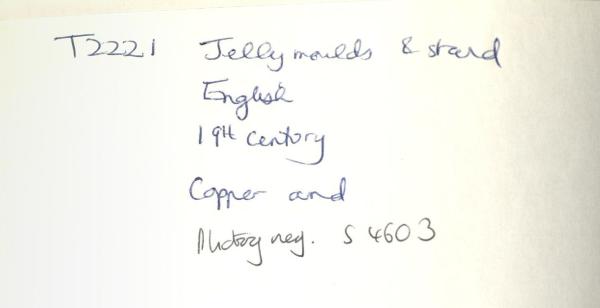 T2221 Jelly moulds & stand
English
19th century
Copper and
Photog neg. S 4603